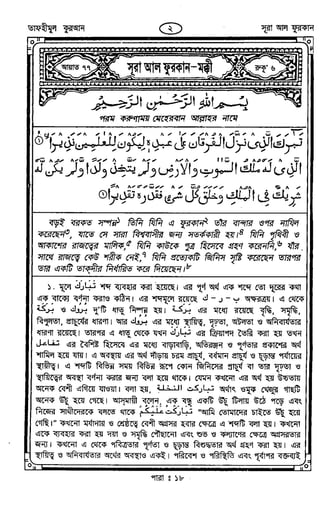 তাফহীমুল কুরআন
২
সূরা আল ফুরকান
আয়াত ৭৭
সূরা আল ফুরকান-মক্কী
রুকূ' ৬
بِسْمِ اللّٰهِ الرَّحْمٰنِ الرَّحِيْمِ
পরম করুণাময় মেহেরবান আল্লাহর নামে
تَبٰرَكَ الَّذِىْ نَزَّلَ الْفُرْقَانَ عَلٰى عَبْدِهٖ لِيَكُوْنَ لِلْعٰلَمِيْنَ نَذِيْرًا ۝
الَّذِىْ لَهٗ مُلْكُ السَّمٰوٰتِ وَالْاَرْضِ وَلَمْ يَتَّخِذْ وَلَدًا وَّلَمْ يَكُنْ لَّهٗ
شَرِيْكٌ فِى الْمُلْكِ وَخَلَقَ كُلَّ شَىْءٍ فَقَدَّرَهٗ تَقْدِيْرًا ۝
বড়ই বরকত সম্পন্ন১ তিনি যিনি এ ফুরকান২ তাঁর বান্দার ওপর নাযিল
করেছেন৩, যাতে সে সারা বিশ্ববাসীর জন্য সতর্ককারী হয়।৪ যিনি পৃথিবী ও
আকাশের রাজত্বের মালিক,৫ যিনি কাউকে পুত্র হিসেবে গ্রহণ করেননি,৬ যাঁর
সাথে রাজত্বে কেউ শরীক নেই,৭ যিনি প্রত্যেকটি জিনিস সৃষ্টি করেছেন তারপর
তার একটি তাকদীর নির্ধারিত করে দিয়েছেন।৮
১. মূলে تبارك শব্দ ব্যবহার করা হয়েছে। এর পূর্ণ অর্থ এক শব্দে তো দূরের কথা
এক বাক্যে বর্ণনা করাও কঠিন। এর শব্দমূলে রয়েছে ب - ر - ك অক্ষরত্রয়। এ থেকে
بركة ও بروك দু'টি ধাতু নিষ্পন্ন হয়। بركة এর মধ্যে রয়েছে বৃদ্ধি, সমৃদ্ধি,
বিপুলতা, প্রাচুর্যের ধারণা। আর بروك এর মধ্যে স্থায়িত্ব, দৃঢ়তা, অটলতা ও অনিবার্যতার
ধারণা রয়েছে। তারপর এ ধাতু থেকে যখন تبارك এর ক্রিয়াপদ তৈরি করা হয় তখন
تفاعل এর বৈশিষ্ট হিসেবে এর মধ্যে বাড়াবাড়ি, অতিরঞ্জন ও পূর্ণতার প্রকাশের অর্থ
শামিল হয়ে যায়। এ অবস্থায় এর অর্থ দাঁড়ায় চরম প্রাচুর্য, বর্ধমান প্রাচুর্য ও চূড়ান্ত পর্যায়ের
স্থায়িত্ব। এ শব্দটি বিভিন্ন সময় বিভিন্ন রূপে কোন জিনিসের প্রাচুর্য বা তার দৃঢ়তা ও
স্থায়িত্বের অবস্থা বর্ণনা করার জন্য বলা হয়ে থাকে। যেমন কখনো এর অর্থ হয় উচ্চতায়
অনেক বেশী এগিয়ে যাওয়া। বলা হয়, تباركت النخلة অর্থাৎ অমুক খেজুর গাছটি
অনেক উঁচু হয়ে গেছে। আসমায়ী বলেন, এক বদ্দু একটি উঁচু টিলায় উঠে পড়ে এবং
নিজের সাথীদেরকে বলতে থাকে تباركت عليكم "আমি তোমাদের চাইতে উঁচু হয়ে
গেছি।" কখনো মর্যাদায় ও শ্রেষ্ঠত্বে বেশী অগ্রসর হবার ক্ষেত্রে এ শব্দটি বলা হয়। কখনো
একে ব্যবহার করা হয় দয়া ও সমৃদ্ধি পৌঁছানো এবং শুভ ও কল্যাণের ক্ষেত্রে অগ্রসরতার
জন্য। কখনো এ থেকে পবিত্রতার পূর্ণতা ও চূড়ান্ত বিশুদ্ধতার অর্থ গ্রহণ করা হয়। এর
স্থায়িত্ব ও অনিবার্যতার অর্থের অবস্থাও একই। পরিবেশ ও পরিস্থিতি এবং পূর্বাপর বক্তব্যই
পারা : ১৮